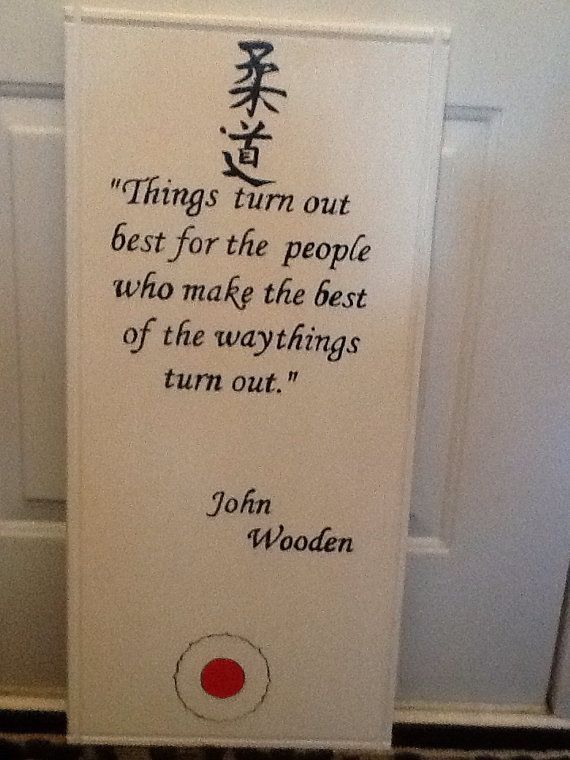 柔
道
"Things turn out
best for the people
who make the best
of the waythings
turn out."
John
Wooden